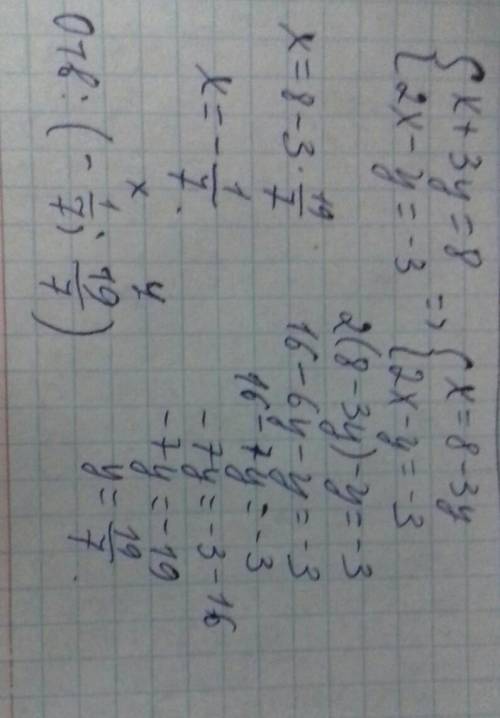 { x + 3y = 8 => { x = 8 - 3y
{ 2x - y = -3 { 2x - y = -3
2(8 - 3y) - y = -3
16 - 6y - y = -3
16 - 7y = -3
-7y = -3 - 16
-7y = -19
y = 19/7.
x = 8 - 3 · 19/7
x = - 1/7.
x y
Отв: (- 1/7; 19/7)